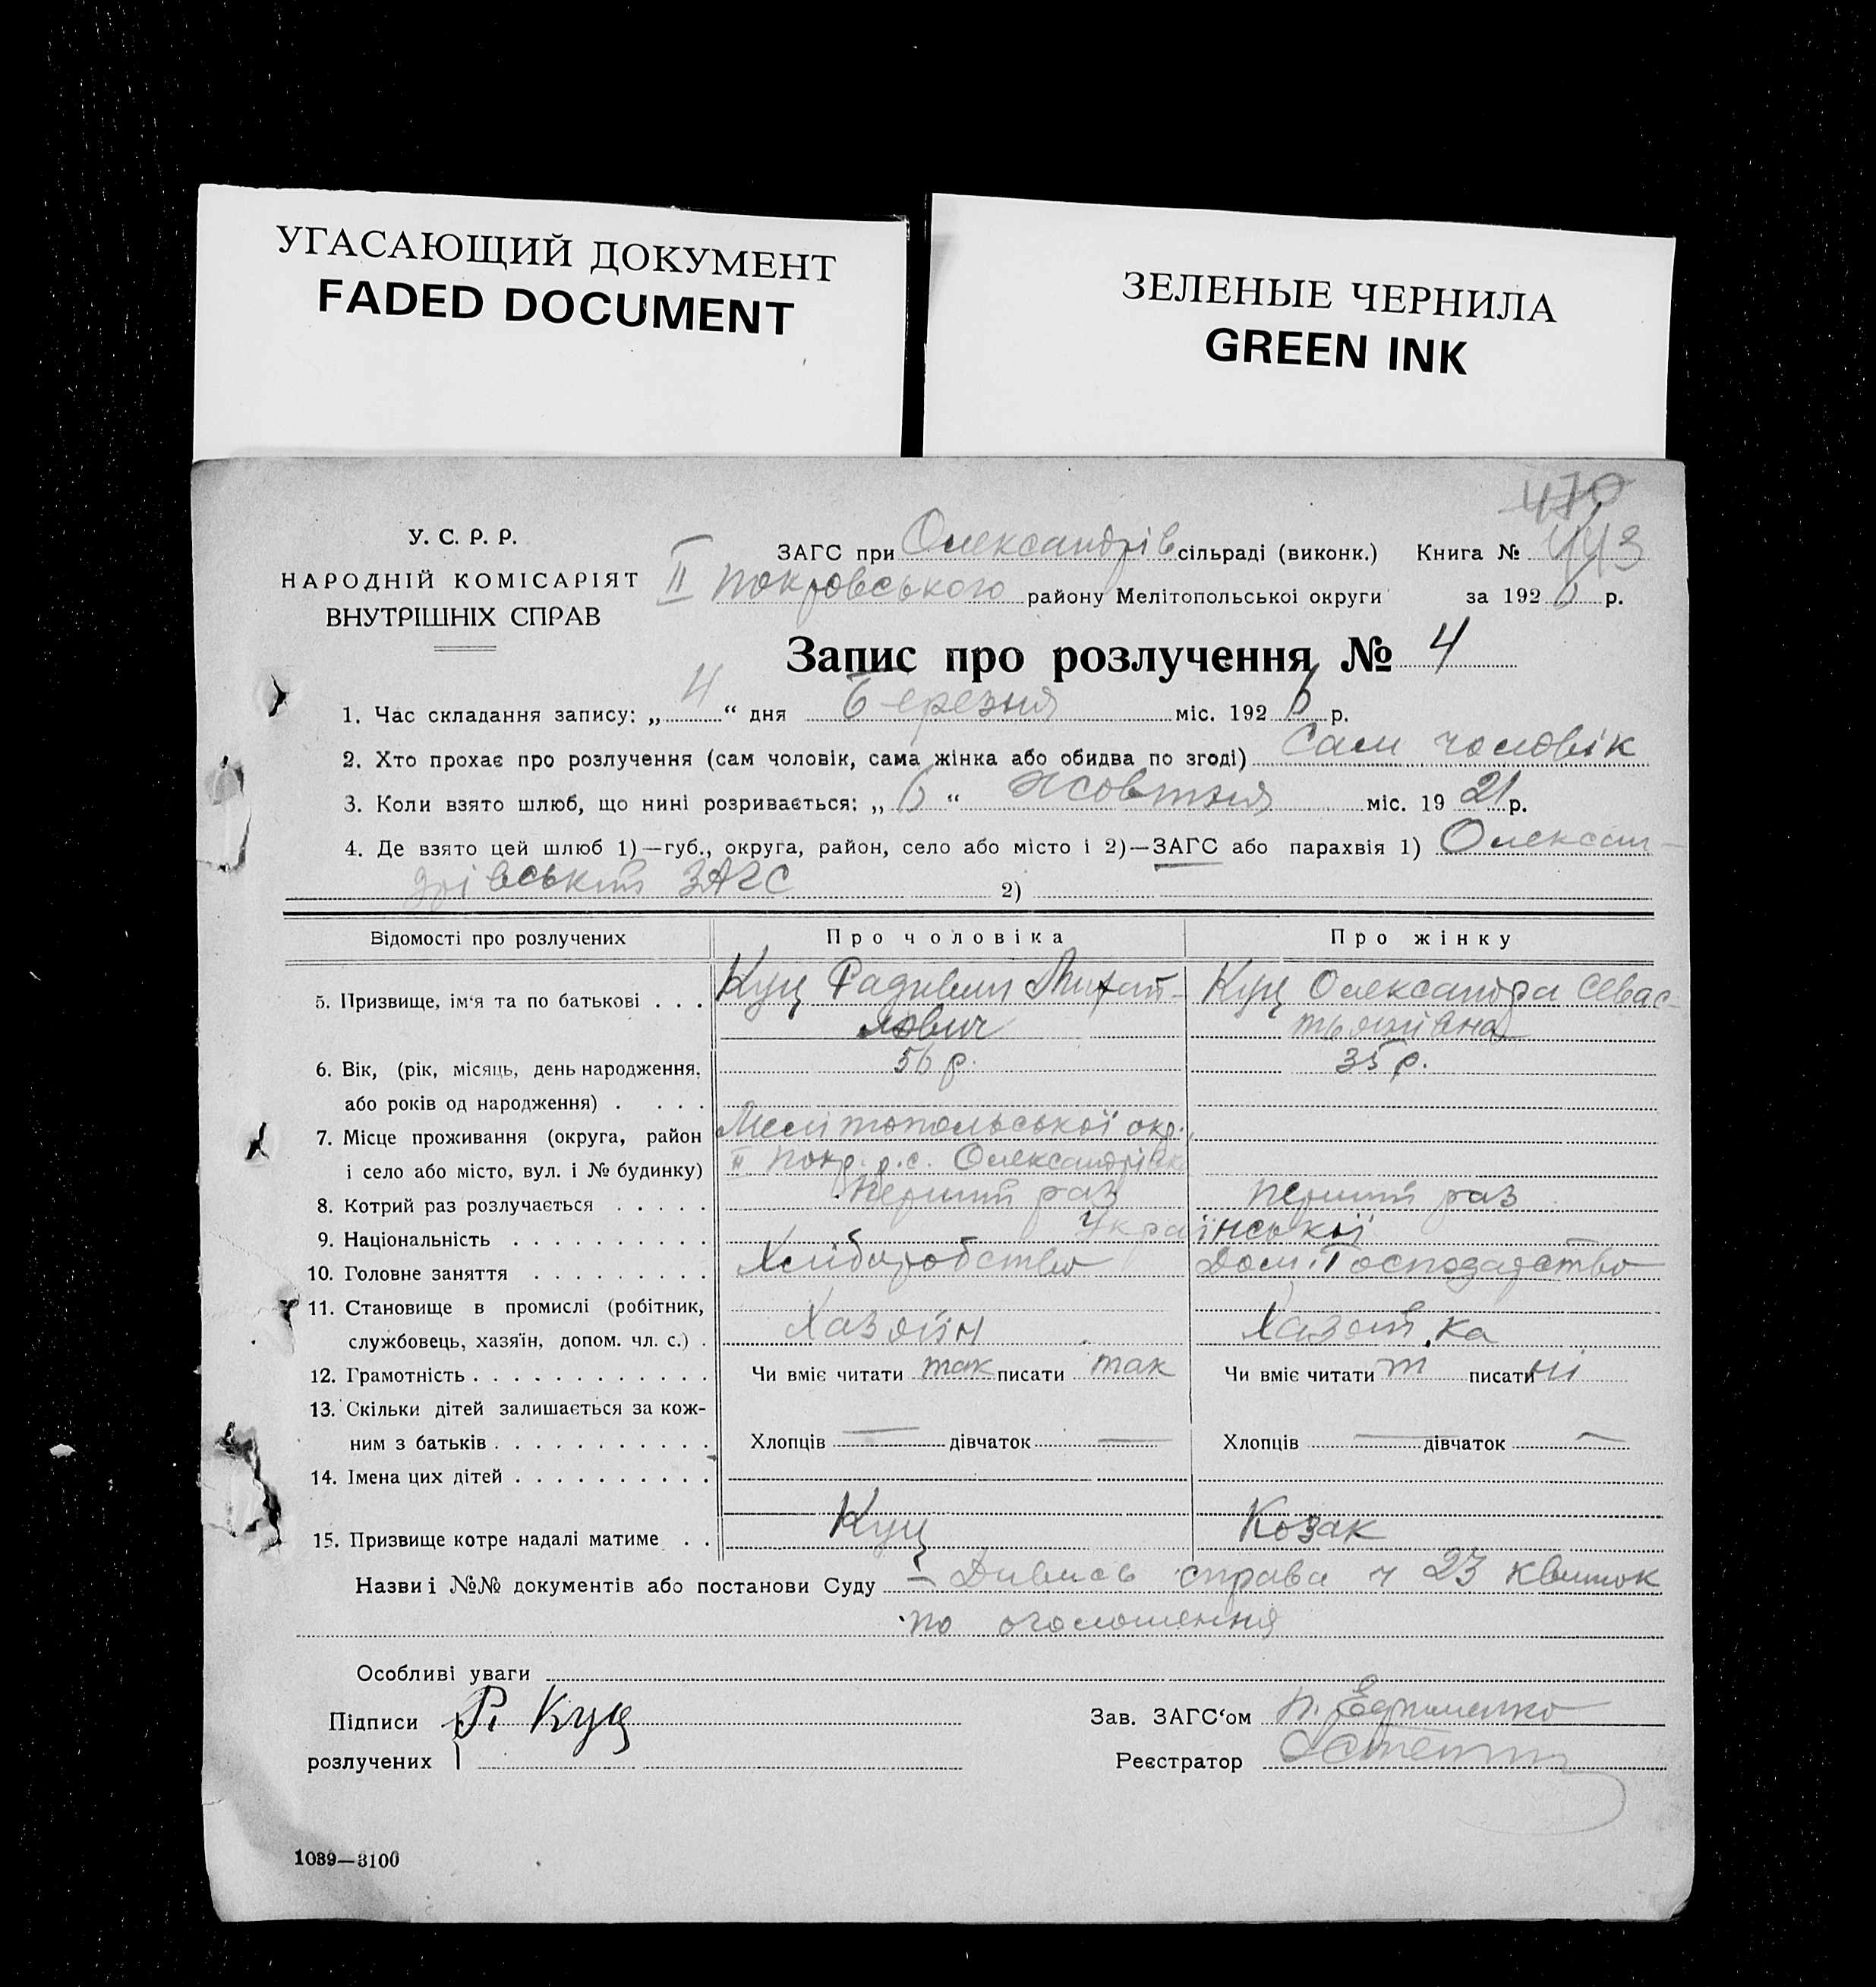 УГАСАЮЩИЙ ДОКУМЕНТ
FADED DOCUMENT
ЗЕЛЕНЫЕ ЧЕРНИЛА
GREEN INK
470
У. С. Р. Р.
НАРОДНІЙ КОМІСАРІЯТ
ВНУТРІШНІХ СПРАВ
ЗАГС при Олександрів сільраді (виконк.) Книга № 443
II Покровського району Мелітопольської округи за 1926 р.
Запис про розлучення № 4
1. Час складання запису: „ 4 “ дня Березня міс. 1926 р.
2. Хто прохає про розлучення (сам чоловік, сама жінка або обидва по згоді) Сам чоловік
3. Коли взято шлюб, що нині розривається: „ 6 “ Жовтня міс. 19 21 р.
4. Де взято цей шлюб 1)—губ., округа, район, село або місто і 2)—ЗАГС або парахвія 1) Олексан-
дрівський ЗАГС 2)
Відомості про розлучених Про чоловіка Про жінку
5. Призвище, ім'я та по батькові . . . Куц Радивин Михай- Куц Олександра Севас-
лович тьянівна
6. Вік, (рік, місяць, день народження, 56 р. 35 р.
або років од народження) . . . .
7. Місце проживання (округа, район Мелітопольської окр.,
і село або місто, вул. і № будинку) II Покр. р. с. Олександрівка
8. Котрий раз розлучається . . . . . Перший раз Перший раз
9. Національність . . . . . . . . . . Української
10. Головне заняття . . . . . . . . . Хліборобство Дом. Господарство
11. Становище в промислі (робітник,
службовець, хазяїн, допом. чл. с.) . Хазяїн Хазяйка
12. Грамотність . . . . . . . . . . . . Чи вміє читати так писати так Чи вміє читати писати ні
13. Скільки дітей залишається за кож-
ним з батьків . . . . . . . . . . . Хлопців — дівчаток — Хлопців — дівчаток —
14. Імена цих дітей . . . . . . . . . .
15. Призвище котре надалі матиме . . Куц Козак
Назви і №№ документів або постанови Суду — Дивись справа ч 23 квиток
по оголошення
Особливі уваги
Підписи Р. Куц Зав. ЗАГС'ом П. Ефименко
розлучених Реєстратор
1039—3100